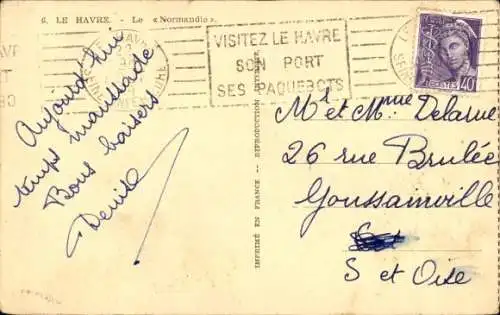 6. LE HAVRE. - Le «Normandie».
VISITEZ LE HAVRE
SON PORT
SES PAQUEBOTS
POSTES 40
Aujourd'hui
temps maussade
Bons baisers
Denise
IMPRIMÉ EN FRANCE - REPRODUCTION
Mr et Mme Delarue
26 rue Brulée
Goussainville
S et Oise